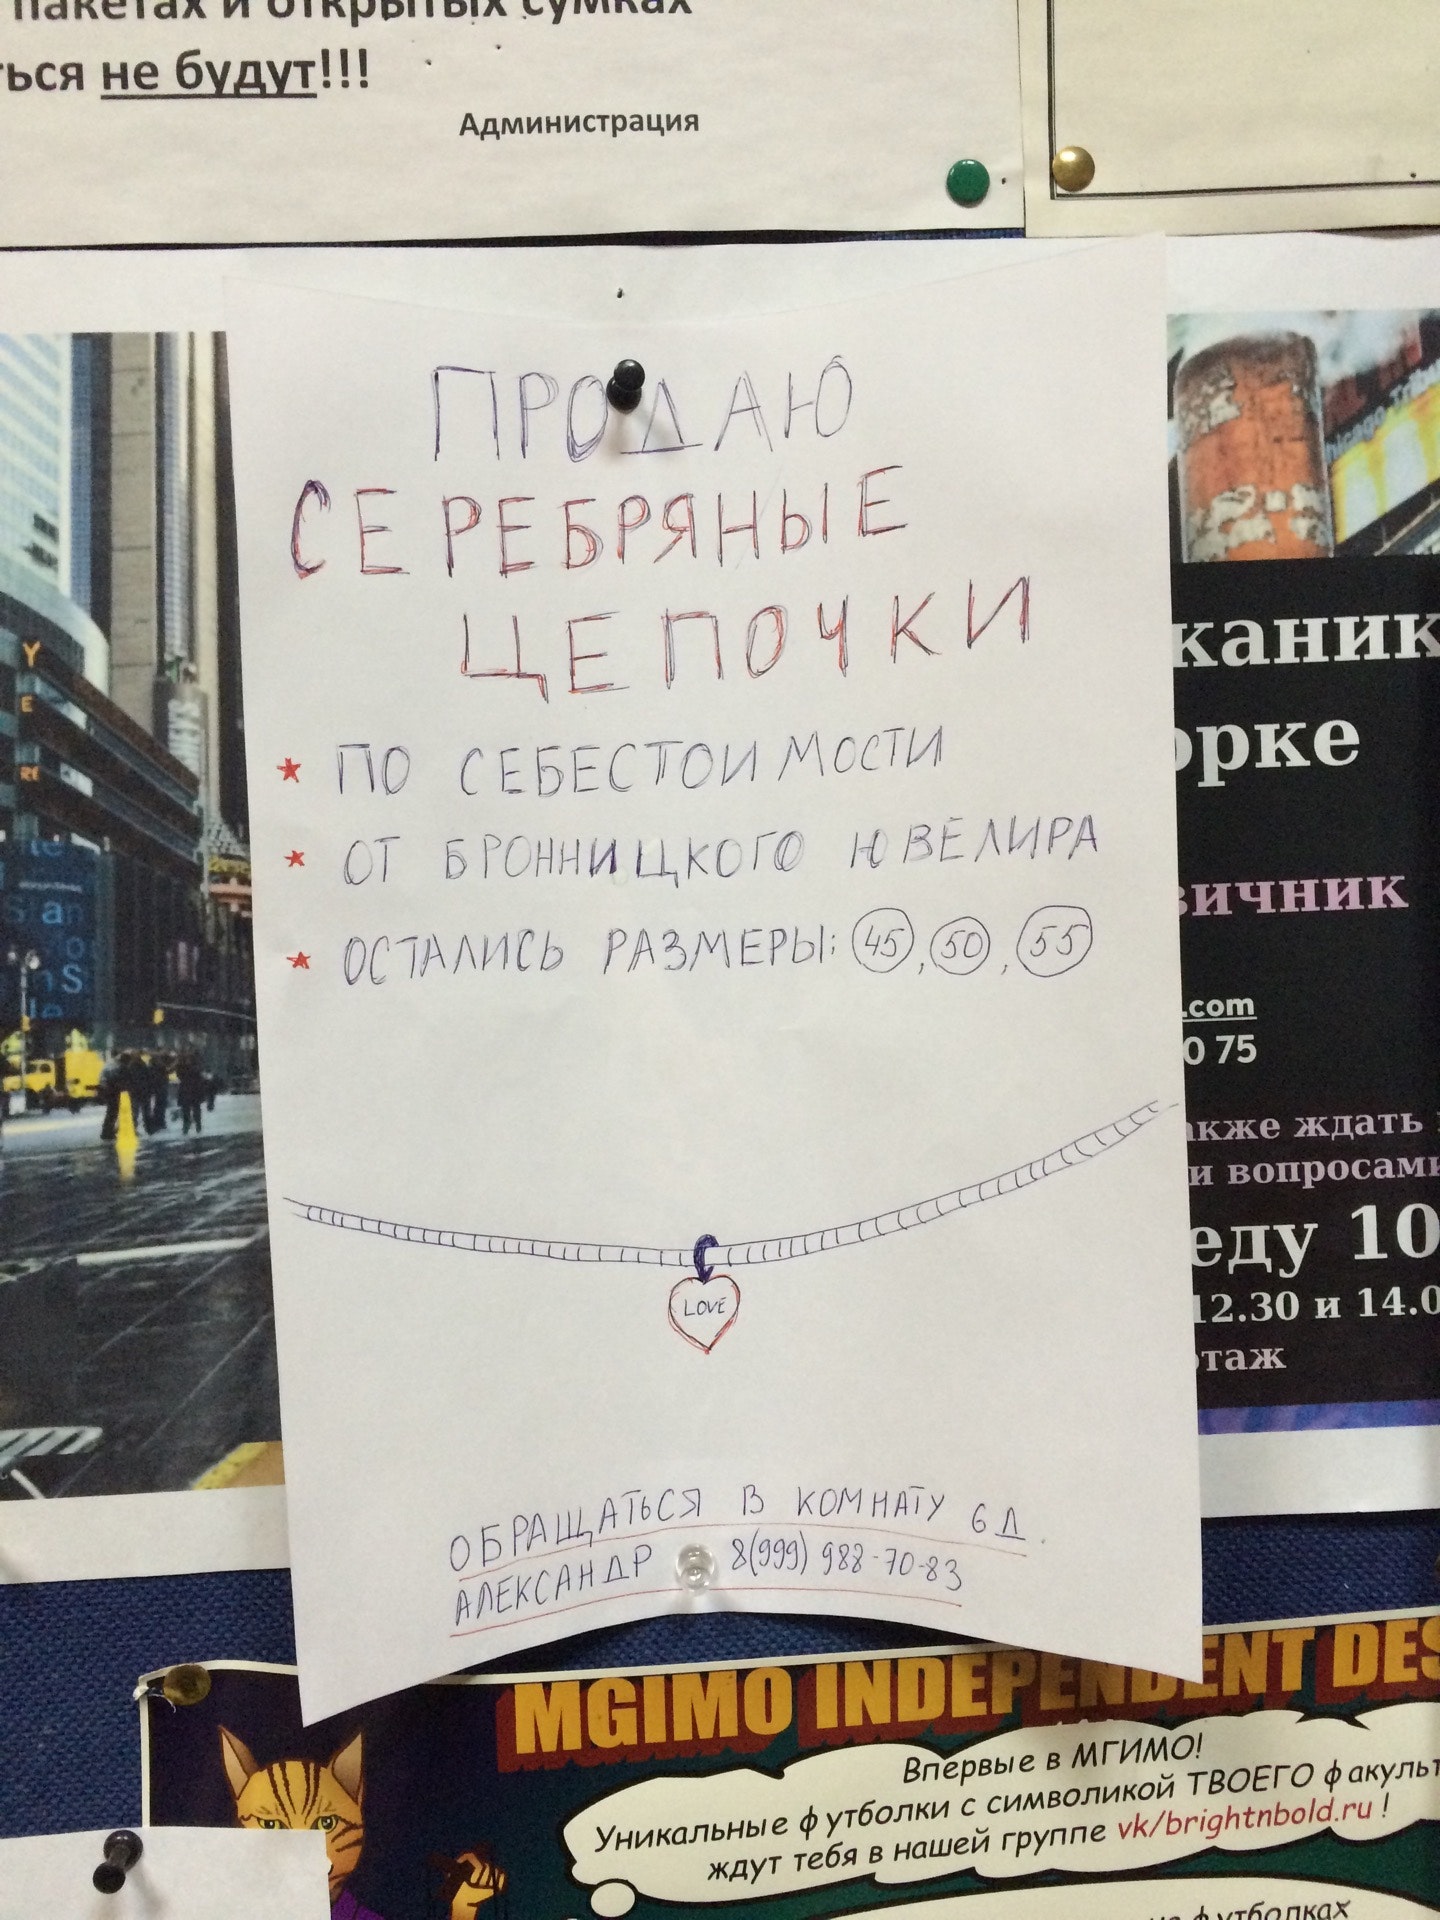 пакетах и открытых сумках
ться не будут!!!
Администрация
ПРОДАЮ
СЕРЕБРЯНЫЕ
ЦЕПОЧКИ
★ ПО СЕБЕСТОИМОСТИ
★ ОТ БРОННИЦКОГО ЮВЕЛИРА
★ ОСТАЛИСЬ РАЗМЕРЫ: 45, 50, 55
LOVE
ОБРАЩАТЬСЯ В КОМНАТУ 6Д.
АЛЕКСАНДР 8(999) 988-70-83
каник
орке
вичник
.com
0 75
акже ждать
и вопросами
еду 10
12.30 и 14.0
этаж
MGIMO INDEPENDENT DES
Впервые в МГИМО!
Уникальные футболки с символикой ТВОЕГО факульт
ждут тебя в нашей группе vk/brightnbold.ru !
футболках